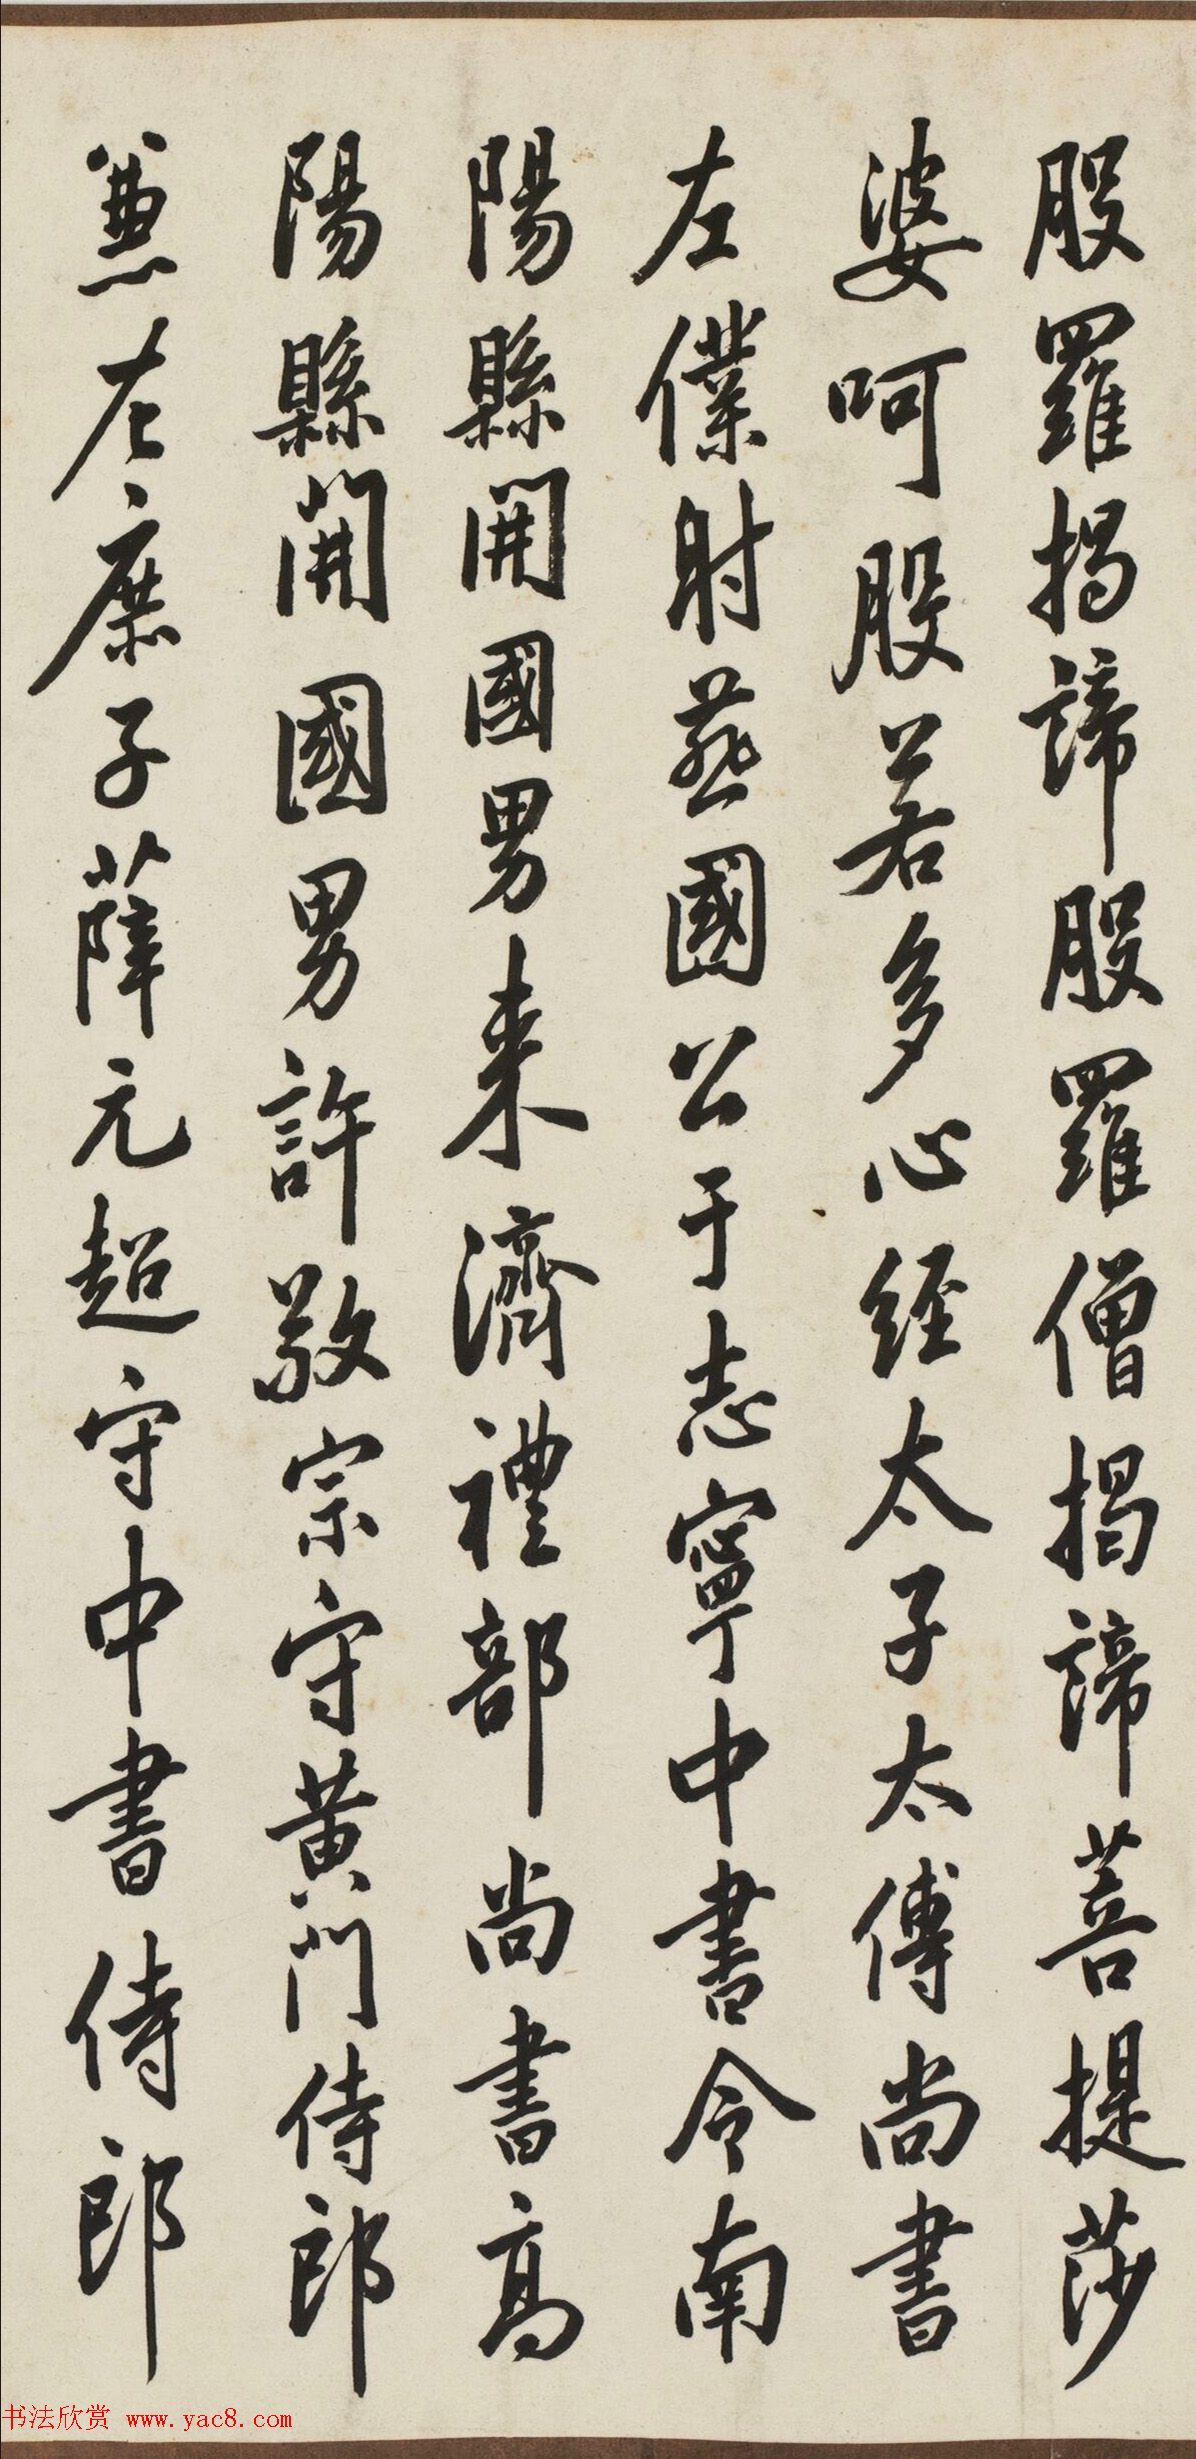 般羅揭諦般羅僧揭諦菩提莎
婆呵般若多心經太子太傅尚書
左僕射燕國公于志寧中書令南
陽縣開國男来濟禮部尚書高
陽縣開國男許敬宗守黄門侍郎
兼左庶子薛元超守中書侍郎
书法欣赏 www.yac8.com